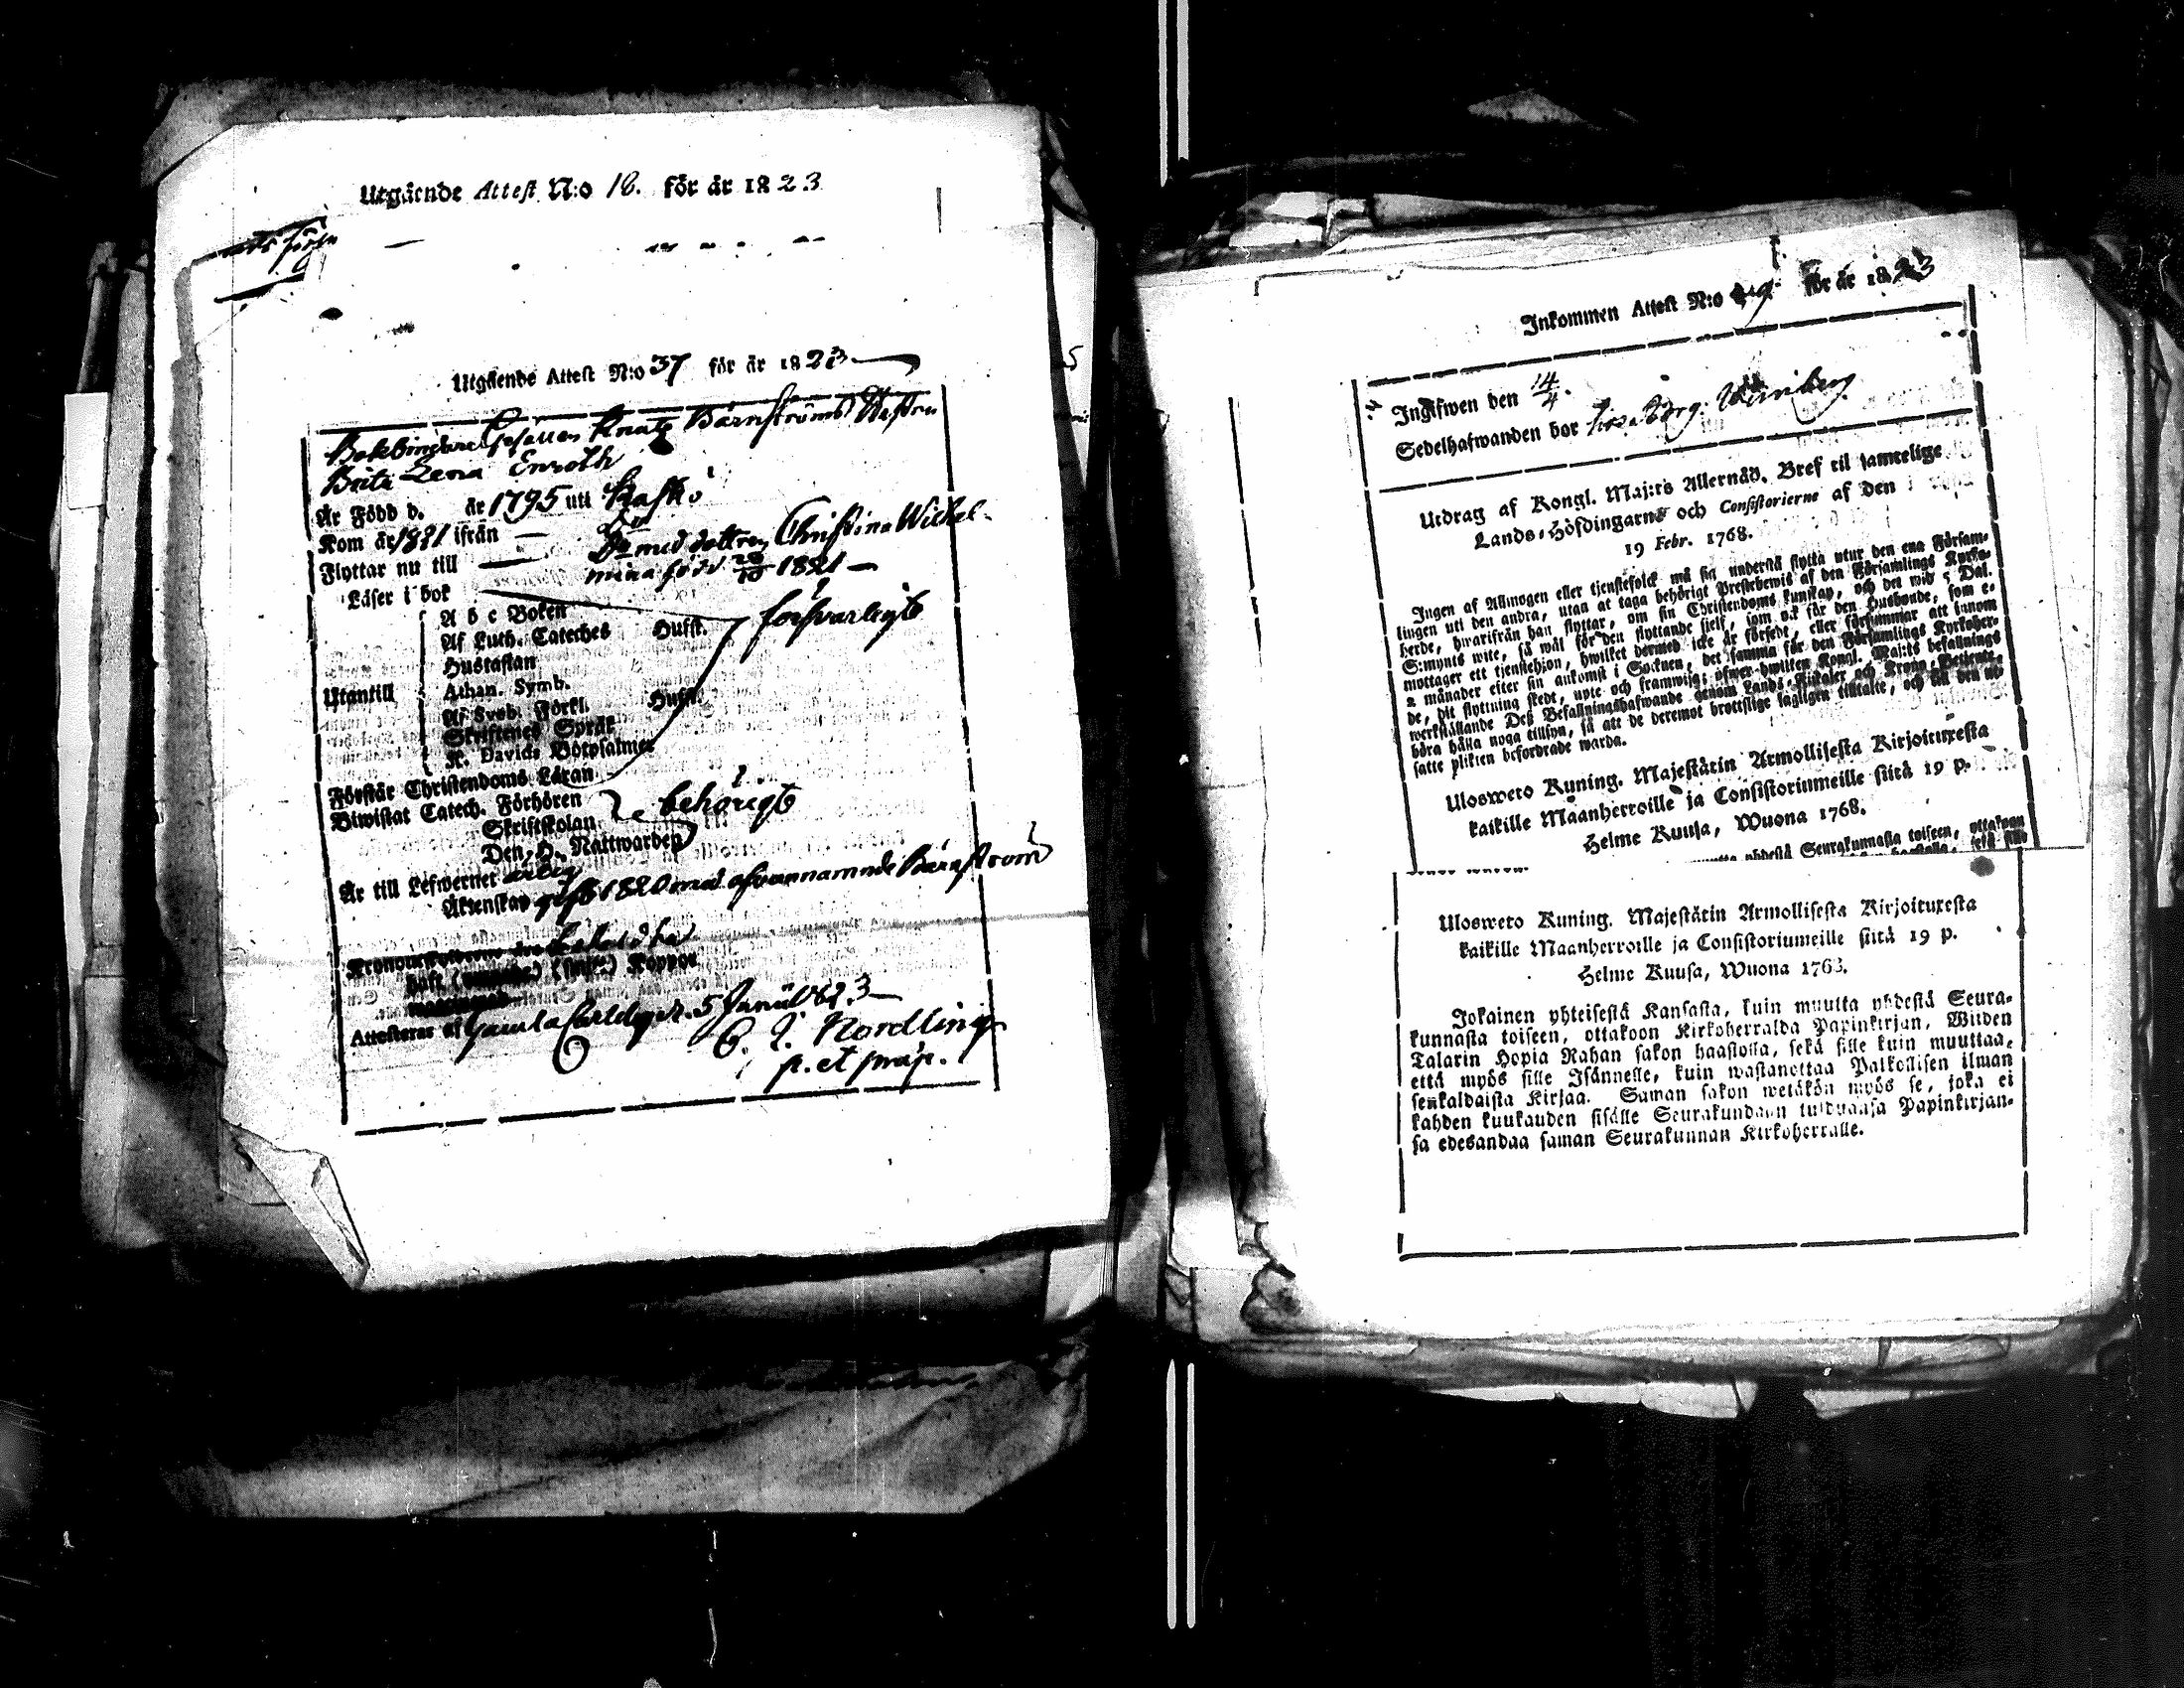 Utgående Attest N:o 18. för år 1823
Utgående Attest N:o 37 för år 1823
Bokbindare Gesällen Knuts Bärnströms Hustru
Brita Lena Enroth
Är Född d. år 1795 uti Kaskö
Kom år 1821 ifrån — Do
Flyttar nu till — Do med dottren Christina Wilhel-
mina född 28/10 1821 —
Läser i bok
A b c Boken
Af Luth. Cateches Hufst. försvarligt
Hustaflan
Utantill Athan. Symb.
Af Sveb. Förkl. Hufst.
Skriftenes Språk
K. Davids Botpsalmer
Förstår Christendoms Läran
Biwistat Catech. Förhören behörigt
Skriftskolan
Den H. Nattwarden
Är till Lefwernet ärlig
Äktenskap gift 1820 med ofvannamnde Bärnström
haft Koppor
Attesteras af Gamla Carleby d. 5 Junii 1823 —
C. J. Nordling
p. et præp.
Inkommen Attest N:o för år 1823
Ingifwen den 14/4.
Sedelhafwanden bor
Utdrag af Kongl. Maj:ts Allernåd. Bref til samtelige
Lands-Höfdingarne och Consistorierne af den
19 Febr. 1768.
Ingen af Allmogen eller tjenstefolck må sig understå flytta utur den ena Försam-
lingen uti den andra, utan at taga behörigt Prestebewis af den Församlings Kyrko-
herde, hwarifrån han flyttar, om sin Christendoms kunskap, och det wid 5 Dal.
S:mynts wite, så wäl för den flyttande sielf, som ock för den Husbonde, som e-
mottager ett tjenstehjon, hwilket dermed icke är försedt, eller försummar att innom
2 månader efter sin ankomst i Socknen, det samma för den Församlings Kyrkoher-
de, dit flyttning skedt, upte och framwisa; öfwer hwilken Kongl. Maj:ts befallnings
werkställande Deß Befallningshafwande genom Lands-Fiskaler och Krono-Betjente,
böra hålla noga tillsyn, så att de deremot brottslige lagligen tilltalte, och till den ut-
satte plikten befordrade warda.
Ulosweto Kuning. Majestätin Armollisesta Kirjoituxesta
kaikille Maanherroille ja Consistoriumeille siitä 19 p.
Helme Kuusa, Wuona 1768.
yhdestä Seurakunnasta toiseen, ottakoon
Ulosweto Kuning. Majestätin Armollisesta Kirjoituxesta
kaikille Maanherroille ja Consistoriumeille siitä 19 p.
Helme Kuusa, Wuona 1768.
Jokainen yhteisestä Kansasta, kuin muutta yhdestä Seura-
kunnasta toiseen, ottakoon Kirkoherralda Papinkirjan, Wiiden
Talarin Hopia Rahan sakon haastolla, sekä sille kuin muuttaa,
että myös sille Isännelle, kuin wastanottaa Palkollisen ilman
senkaldaista Kirjaa. Saman sakon wetäkön myös se, joka ei
kahden kuukauden sisälle Seurakundaan tulduansa Papinkirjan-
sa edesandaa saman Seurakunnan Kirkoherralle.